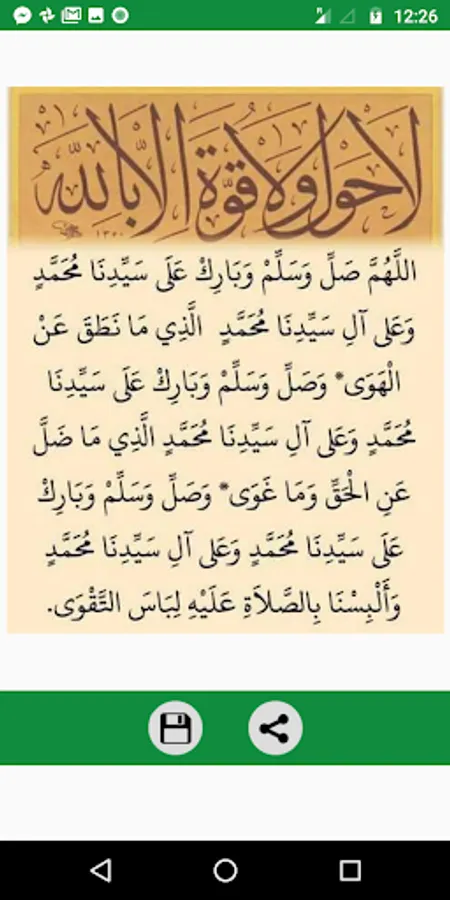 12:26
لا حول ولا قوة إلا بالله
١٣٤٠
اللَّهُمَّ صَلِّ وَسَلِّمْ وَبَارِكْ عَلَى سَيِّدِنَا مُحَمَّدٍ
وَعَلى آلِ سَيِّدِنَا مُحَمَّدٍ الَّذِي مَا نَطَقَ عَنْ
الْهَوَى* وَصَلِّ وَسَلِّمْ وَبَارِكْ عَلَى سَيِّدِنَا
مُحَمَّدٍ وَعَلى آلِ سَيِّدِنَا مُحَمَّدٍ الَّذِي مَا ضَلَّ
عَنِ الْحَقِّ وَمَا غَوَى* وَصَلِّ وَسَلِّمْ وَبَارِكْ
عَلَى سَيِّدِنَا مُحَمَّدٍ وَعَلى آلِ سَيِّدِنَا مُحَمَّدٍ
وَأَلْبِسْنَا بِالصَّلاَةِ عَلَيْهِ لِبَاسَ التَّقْوَى.